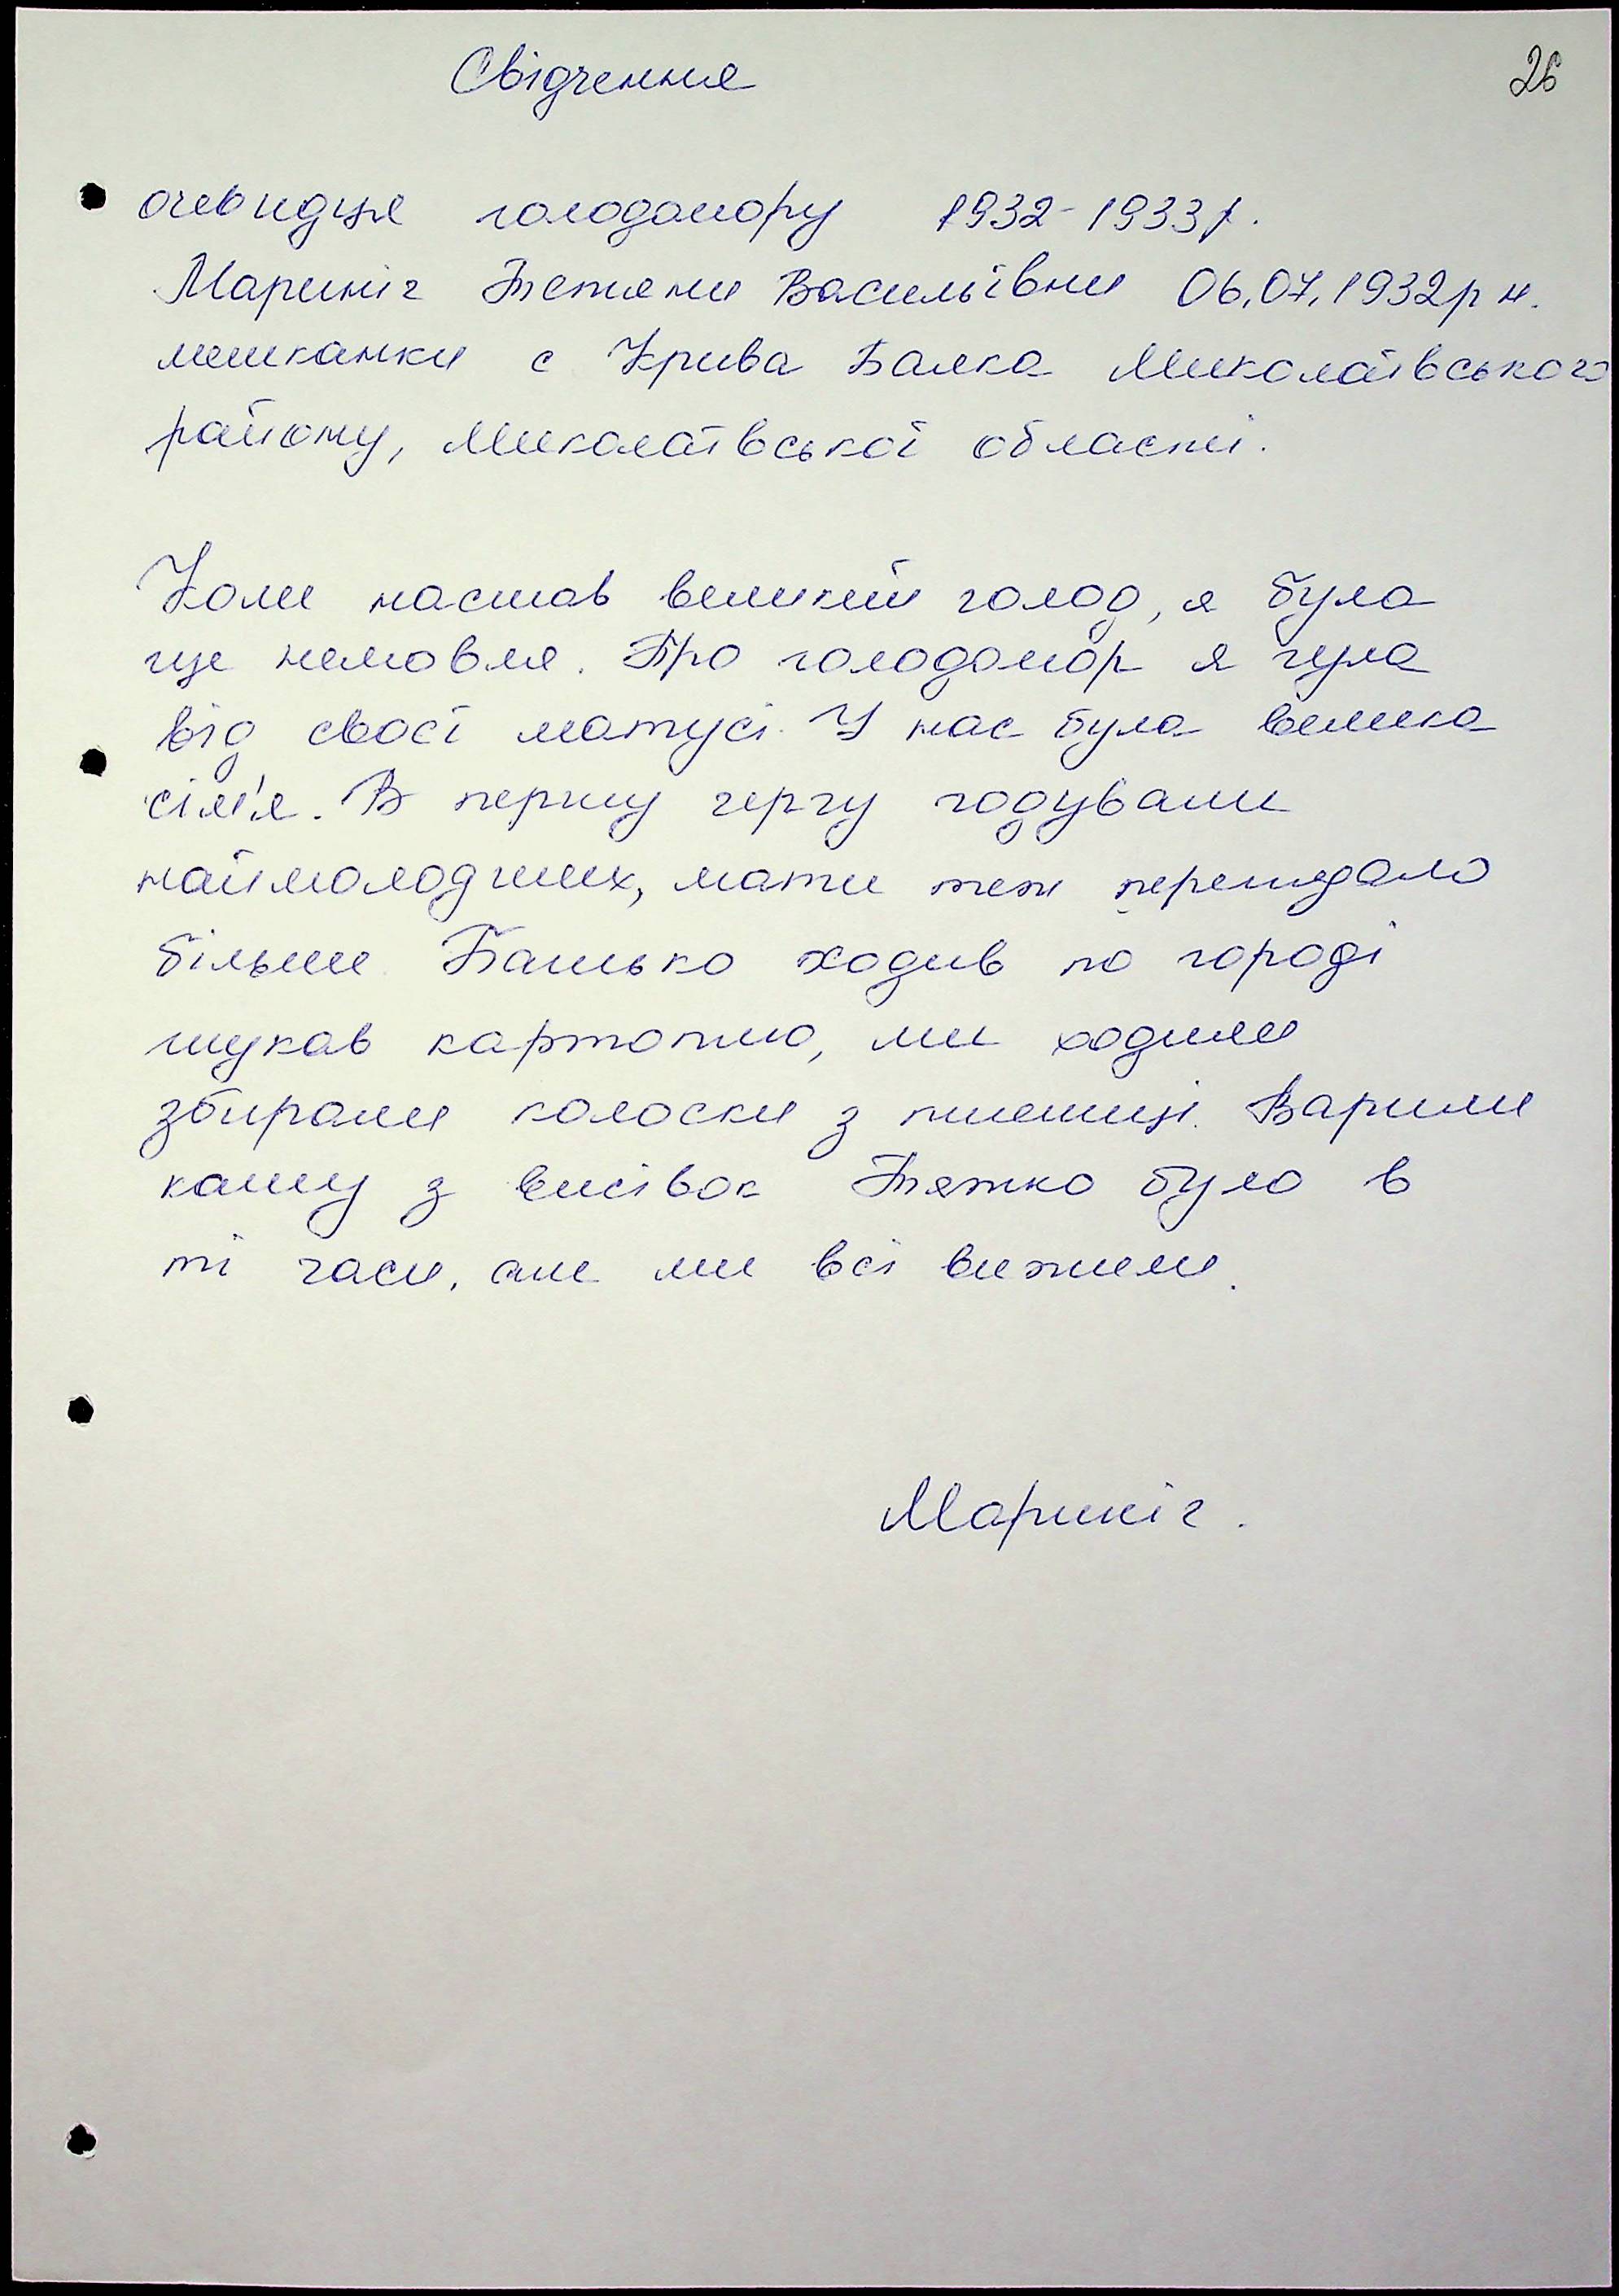 Свідчення
26
очевидця голодомору 1932-1933р.
Мариніч Тетяни Васильївни 06.07.1932р н.
мешканки с Крива Балка Миколаївського
району, Миколаївської області.
Коли настав великий голод, я була
ще немовля. Про голодомор я чула
від своєї матусі. У нас була велика
сім'я. В першу чергу годували
наймолодших, мати теж
більше Батько ходив по городі
шукав картоплю, ми ходили
збирали колоски з пшениці. Варили
кашу з висівок Тяжко було в
ті часи, але ми всі вижили.
Мариніч.